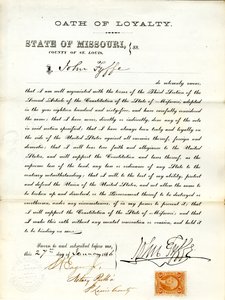 OATH OF LOYALTY.
STATE OF MISSOURI, } SS.
COUNTY OF ST. LOUIS.
I, John Fyffe
do solemnly swear,
that I am well acquainted with the terms of the Third Section of
the Second Article of the Constitution of the State of Missouri, adopted in
the year eighteen hundred and sixty-five, and have carefully considered the
same; that I have never, directly or indirectly, done any of the
acts in said section specified; that I have always been truly and loyally on
the side of the United States against all enemies thereof, foreign and
domestic; that I will bear true faith and allegiance to the United
States, and will support the Constitution and laws thereof, as the
supreme law of the land, any law or ordinance of any State to the
contrary notwithstanding; that I will, to the best of my ability, protect
and defend the Union of the United States, and not allow the same to
be broken up and dissolved, or the Government thereof to be destroyed or
overthrown, under any circumstances, if in my power to prevent it; that
I will support the Constitution of the State of Missouri; and that I
make this oath without any mental reservation or evasion, and hold it
to be binding on me.
Sworn to and subscribed before me,
this 27th day of January 186
John Fyffe
Notary Public
St Louis County